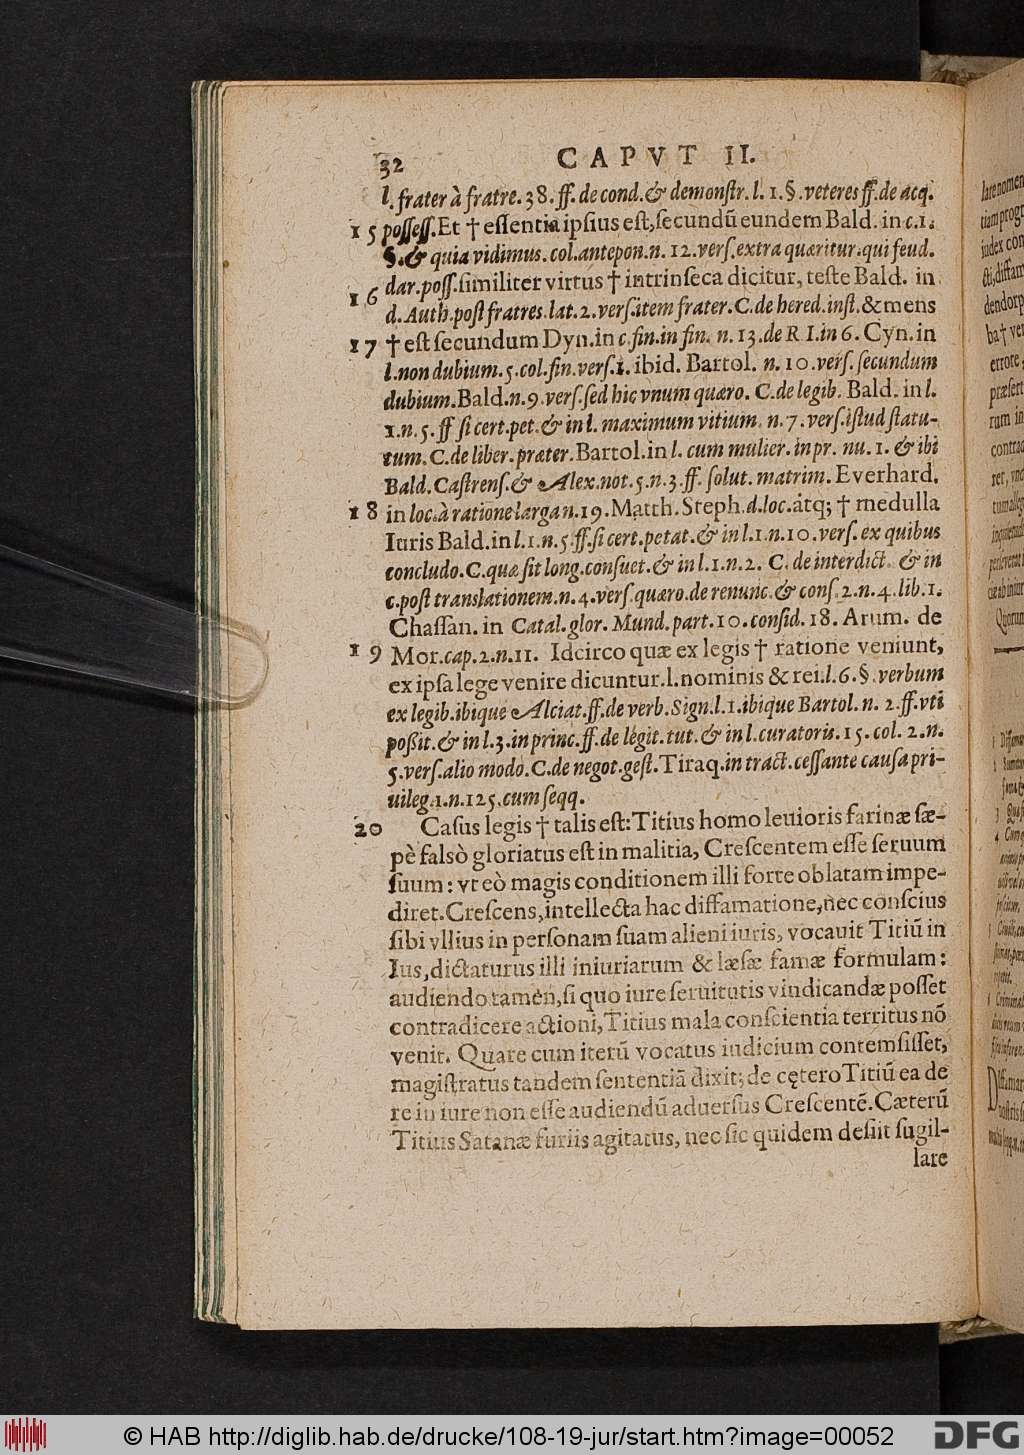 32 CAPVT II.
l. frater à fratre. 38. ff. de cond. & demonſtr. l. 1. §. veteres ff. de acq.
15 poſſeſſ. Et † eſſentia ipſius eſt, ſecundũ eundem Bald. in c. 1.
§. & quia vidimus. col. antepon. n. 12. verſ. extra quæritur. qui feud.
dar. poſſ. ſimiliter virtus † intrinſeca dicitur, teſte Bald. in
16 d. Auth. poſt fratres. lat. 2. verſ. item frater. C. de hered. inſt. & mens
17 † eſt ſecundum Dyn. in c. fin. in fin. n. 13. de R I. in 6. Cyn. in
l. non dubium. 5. col. fin. verſ. 1. ibid. Bartol. n. 10. verſ. ſecundum
dubium. Bald. n. 9. verſ. ſed hic vnum quæro. C. de legib. Bald. in l.
1. n. 5. ff ſi cert. pet. & in l. maximum vitium. n. 7. verſ. iſtud ſtatu-
tum. C. de liber. præter. Bartol. in l. cum mulier. in pr. nu. 1. & ibi
Bald. Caſtrenſ. & Alex. not. 5. n. 3. ff. ſolut. matrim. Everhard.
18 in loc. à ratione larga n. 19. Matth. Steph. d. loc. atq; † medulla
Iuris Bald. in l. 1. n. 5. ff. ſi cert. petat. & in l. 1. n. 10. verſ. ex quibus
concludo. C. quæ ſit long. conſuet. & in l. 1. n. 2. C. de interdict. & in
c. poſt translationem. n. 4. verſ. quæro. de renunc. & conſ. 2. n. 4. lib. 1.
Chaſſan. in Catal. glor. Mund. part. 10. conſid. 18. Arum. de
19 Mor. cap. 2. n. 11. Idcirco quæ ex legis † ratione veniunt,
ex ipſa lege venire dicuntur. l. nominis & rei. l. 6. §. verbum
ex legib. ibique Alciat. ff. de verb. Sign. l. 1. ibique Bartol. n. 2. ff. vti
poßit. & in l. 3. in princ. ff. de legit. tut. & in l. curatoris. 15. col. 2. n.
5. verſ. alio modo. C. de negot. geſt. Tiraq. in tract. ceſſante cauſa pri-
uileg. 1. n. 125. cum ſeqq.
20 Caſus legis † talis eſt: Titius homo leuioris farinæ ſæ-
pè falsò gloriatus eſt in malitia, Creſcentem eſſe ſeruum
ſuum: vt eò magis conditionem illi forte oblatam impe-
diret. Creſcens, intellecta hac diffamatione, nec conſcius
ſibi vllius in perſonam ſuam alieni iuris, vocavit Titiũ in
Ius, dictaturus illi iniuriarum & læſæ famæ formulam:
audiendo tamen, ſi quo iure ſeruitutis vindicandæ poſſet
contradicere actioni, Titius mala conſcientia territus nõ
venit. Quare cum iterũ vocatus iudicium contemſiſſet,
magiſtratus tandem ſententiã dixit; de cętero Titiũ ea de
re in iure non eſſe audiendũ aduerſus Creſcentẽ. Cæterũ
Titius Satanæ furiis agitatus, nec ſic quidem deſiit ſugil-
lare
© HAB http://diglib.hab.de/drucke/108-19-jur/start.htm?image=00052
DFG